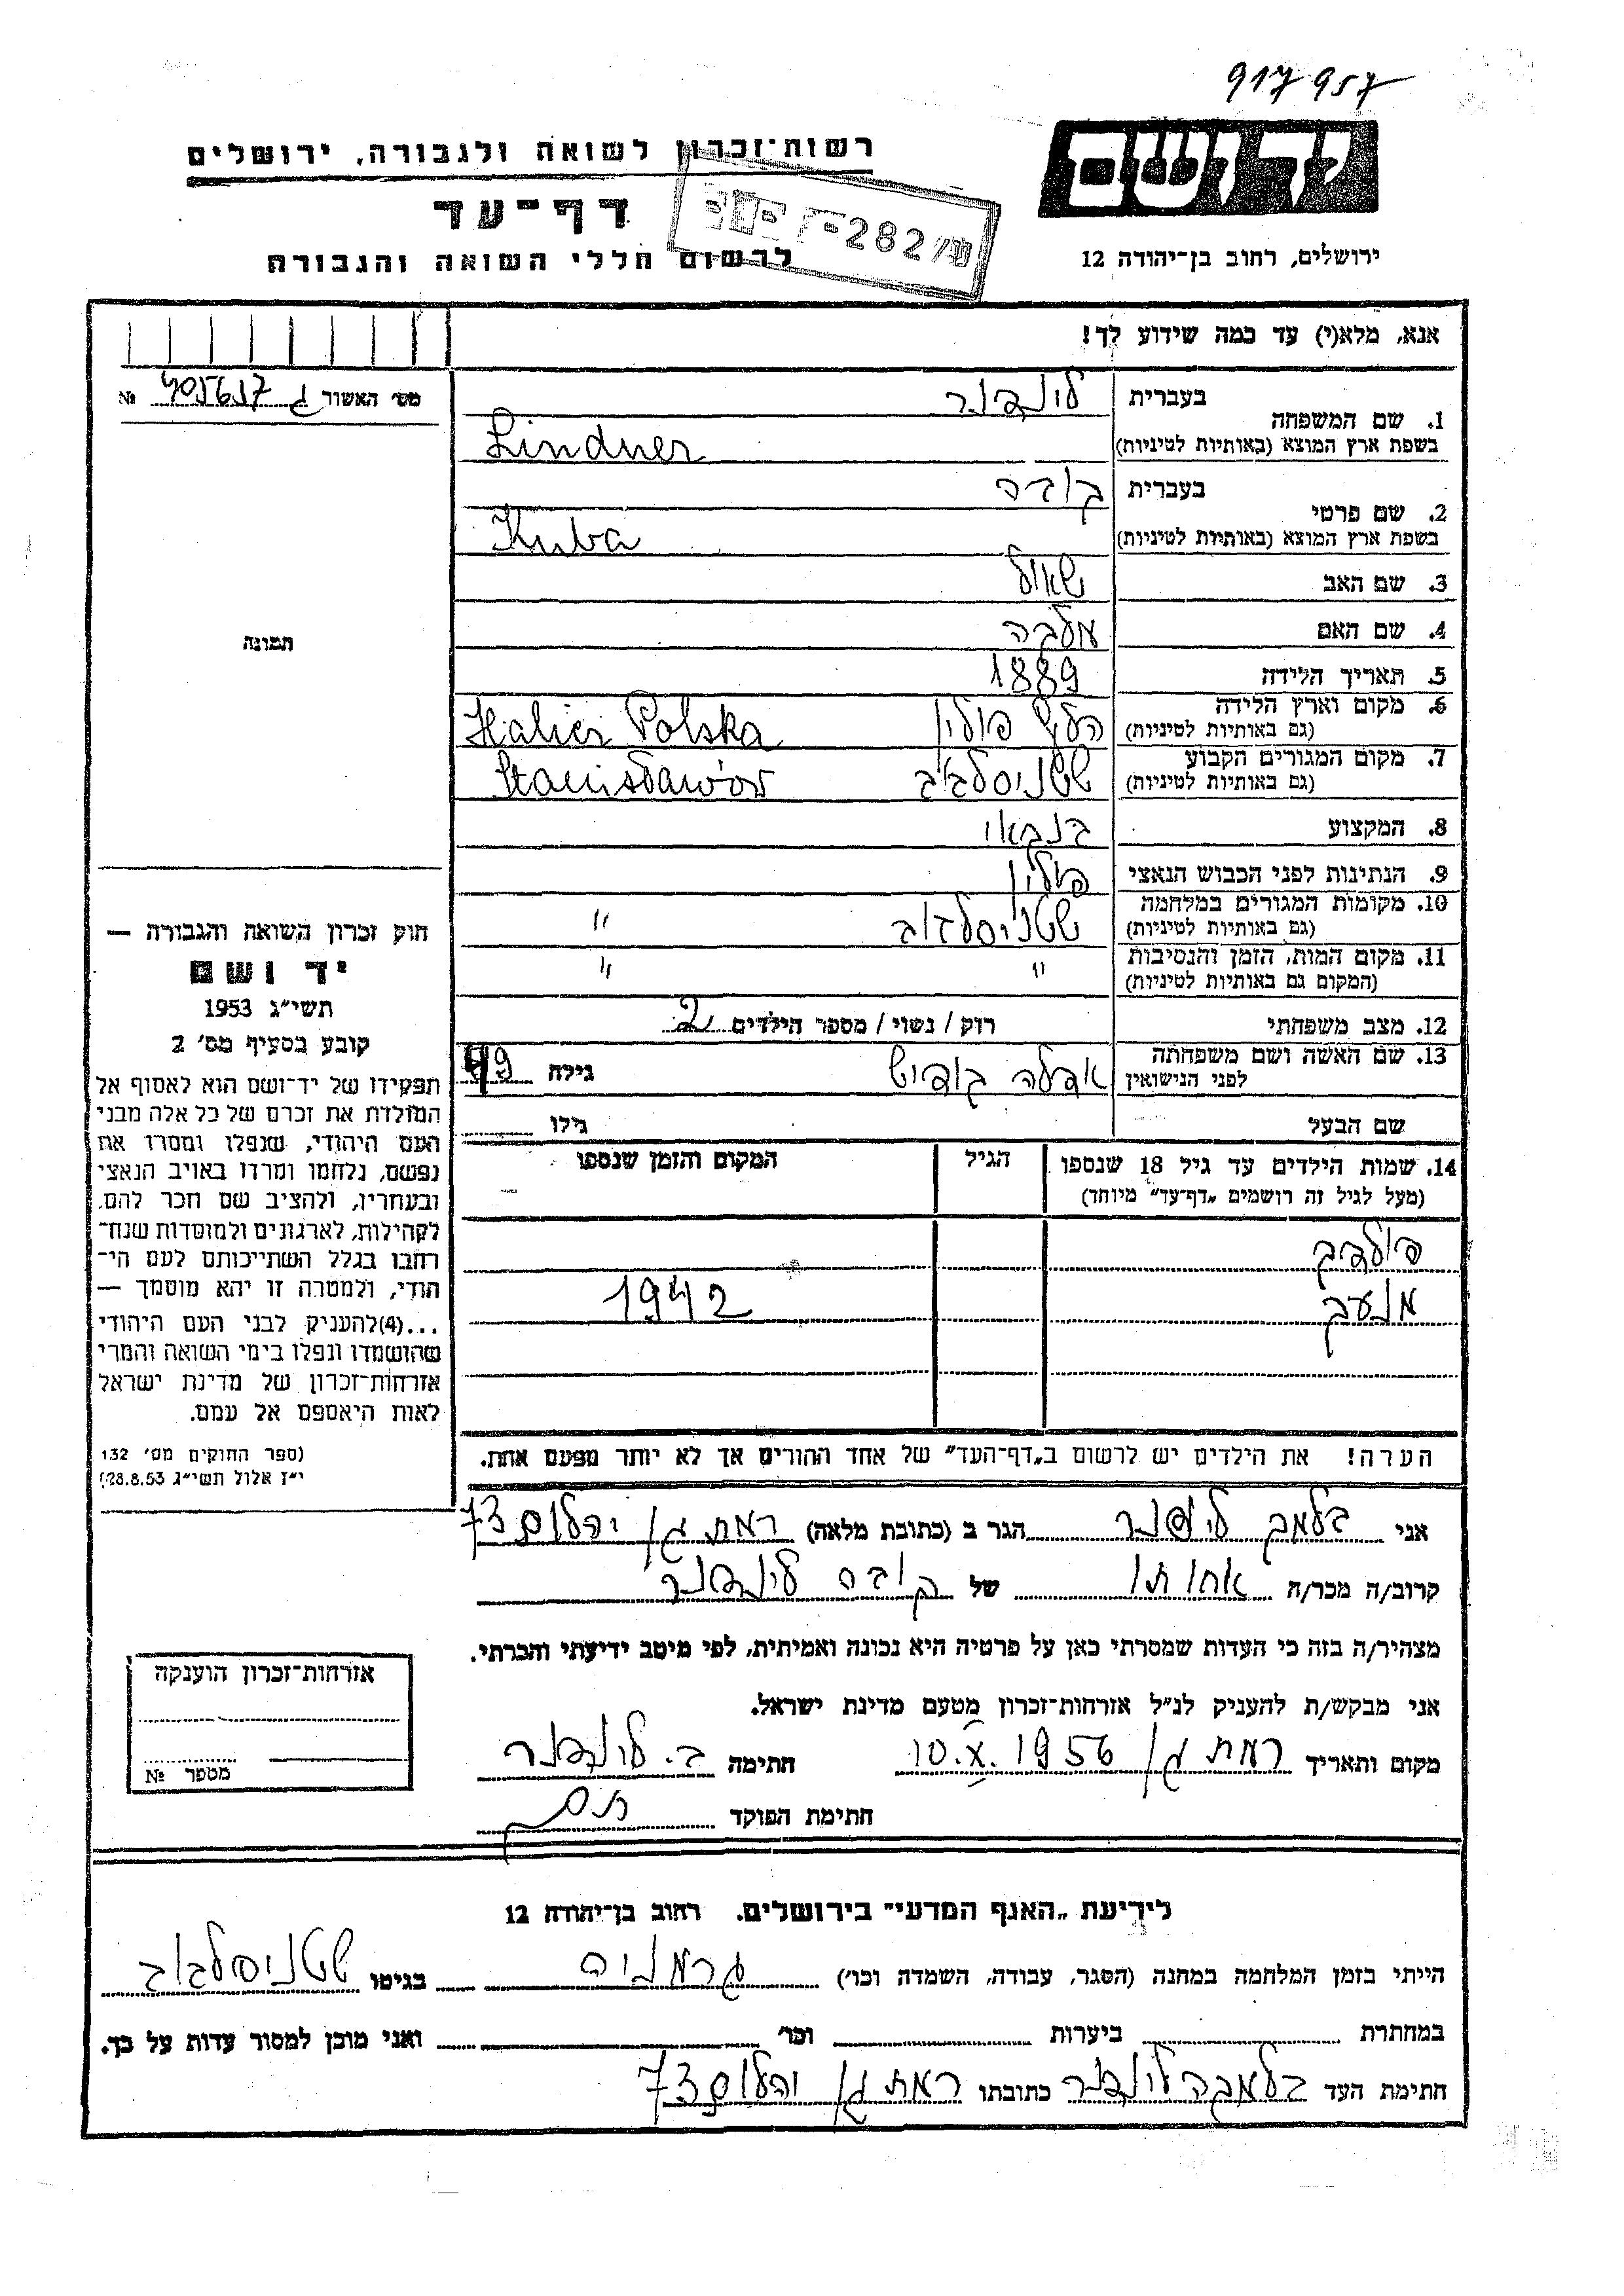 917957
יד ושם
רשות־זכרון לשואה ולגבורה, ירושלים
דף־עד
282
לרשום חללי השואה והגבורה
ירושלים, רחוב בן־יהודה 12
אנא, מלא(י) עד כמה שידוע לך!
מס׳ האשור ג 405617 №
1. שם המשפחה בעברית לינדנר
בשפת ארץ המוצא (באותיות לטיניות) Lindner
2. שם פרטי בעברית קובה
בשפת ארץ המוצא (באותיות לטיניות) Kuba
3. שם האב שאול
4. שם האם מלכה
5. תאריך הלידה 1889
6. מקום וארץ הלידה פולין Halicz Polska
(גם באותיות לטיניות)
7. מקום המגורים הקבוע שטניסלבוב Stanisławów
(גם באותיות לטיניות)
8. המקצוע בנקאי
9. הנתינות לפני הכבוש הנאצי פולין
10. מקומות המגורים במלחמה שטניסלבוב "
(גם באותיות לטיניות)
11. מקום המות, הזמן והנסיבות " "
(המקום גם באותיות לטיניות)
12. מצב משפחתי רוק / נשוי / מספר הילדים 2
13. שם האשה ושם משפחתה
לפני הנישואין גילה 49
שם הבעל גילו
14. שמות הילדים עד גיל 18 שנספו הגיל המקום והזמן שנספו
(מעל לגיל זה רושמים „דף־עד״ מיוחד)
1942
הערה! את הילדים יש לרשום ב„דף־העד״ של אחד ההורים אך לא יותר מפעם אחת.
תמונה
חוק זכרון השואה והגבורה —
יד ושם
תשי״ג 1953
קובע בסעיף מס׳ 2
תפקידו של יד־ושם הוא לאסוף אל
המולדת את זכרם של כל אלה מבני
העם היהודי, שנפלו ומסרו את
נפשם, נלחמו ומרדו באויב הנאצי
ובעוזריו, ולהציב שם וזכר להם,
לקהילות, לארגונים ולמוסדות שנח־
רחבו בגלל השתייכותם לעם הי־
הודי, ולמטרה זו יהא מוסמך —
...(4)להעניק לבני העם היהודי
שהושמדו ונפלו בימי השואה והמרי
אזרחות־זכרון של מדינת ישראל
לאות היאספם אל עמם.
(ספר החוקים מס׳ 132
י״ז אלול תשי״ג 28.8.53)
אני לינדנר הגר ב (כתובת מלאה) רמת גן יהלום 73
קרוב/ה מכר/ה אחותו של קובה לינדנר
מצהיר/ה בזה כי העדות שמסרתי כאן על פרטיה היא נכונה ואמיתית, לפי מיטב ידיעתי והכרתי.
אני מבקש/ת להעניק לנ״ל אזרחות־זכרון מטעם מדינת ישראל.
מקום ותאריך רמת גן 10.X.1956 חתימה ב. לינדנר
חתימת הפוקד
אזרחות־זכרון הוענקה
מספר №
לידיעת „האגף המדעי״ בירושלים. רחוב בן־יהודה 12
הייתי בזמן המלחמה במחנה (הסגר, עבודה, השמדה וכו׳) גרמניה בגיטו שטניסלבוב
במחתרת ביערות וכו׳ ואני מוכן למסור עדות על כך.
חתימת העד לינדנר כתובתו רמת גן יהלום 73